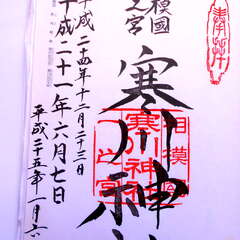 奉拝
模國
之宮
寒川神
相模國
寒川神社
一之宮
平成二十四年十二月二十三日
平成二十一年六月七日
平成二十五年一月六